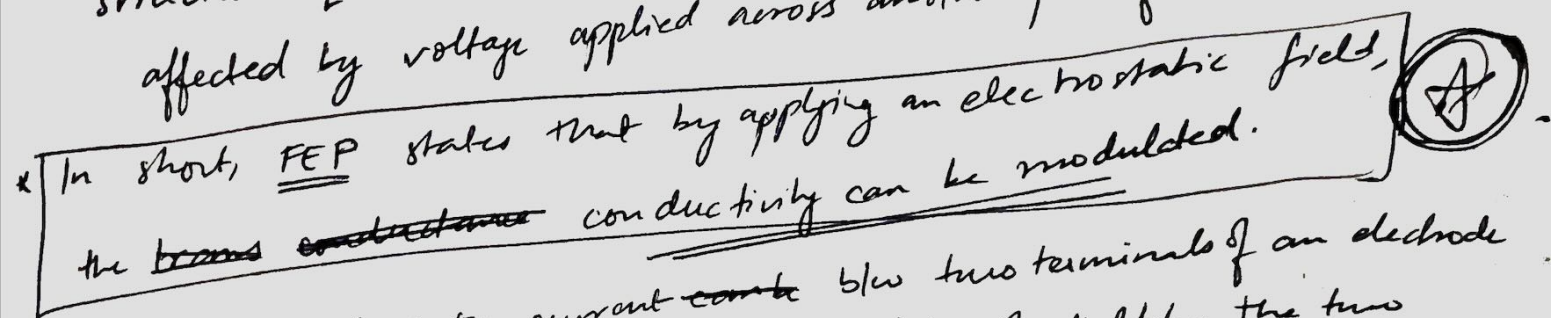 affected by voltage applied across
* In short, FEP states that by applying an electrostatic field, A
the conductivity can be modulated.
current b/w two terminals of an electrode
the two